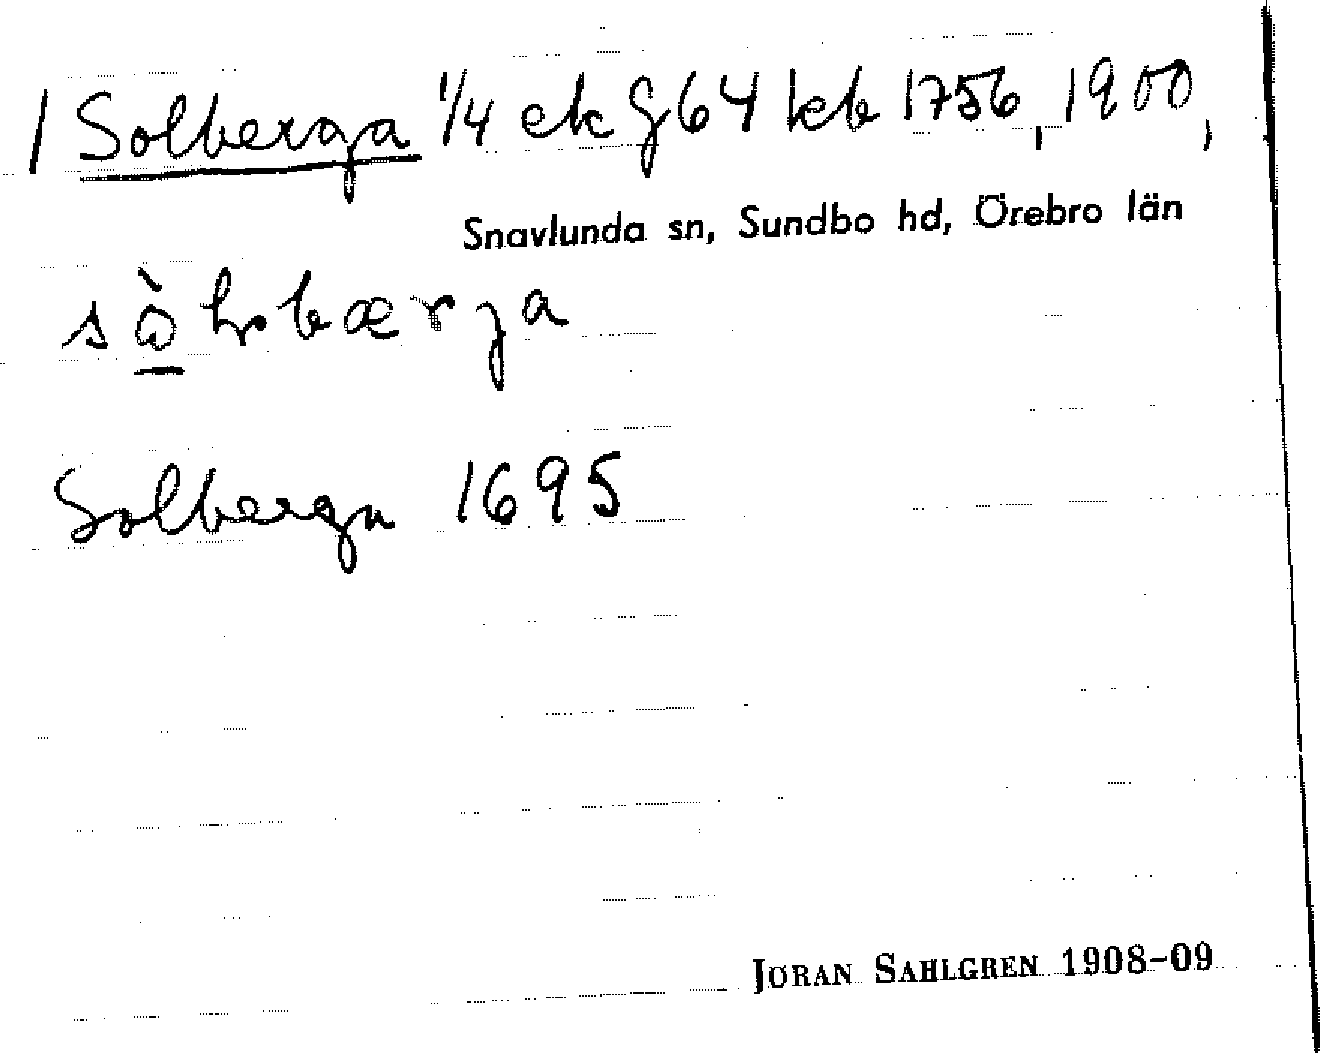 1 Solberga 1/4 ek G64 kb 1756, 1900,
Snavlunda sn, Sundbo hd, Örebro län
Solberga 1695
JÖRAN SAHLGREN 1908-09